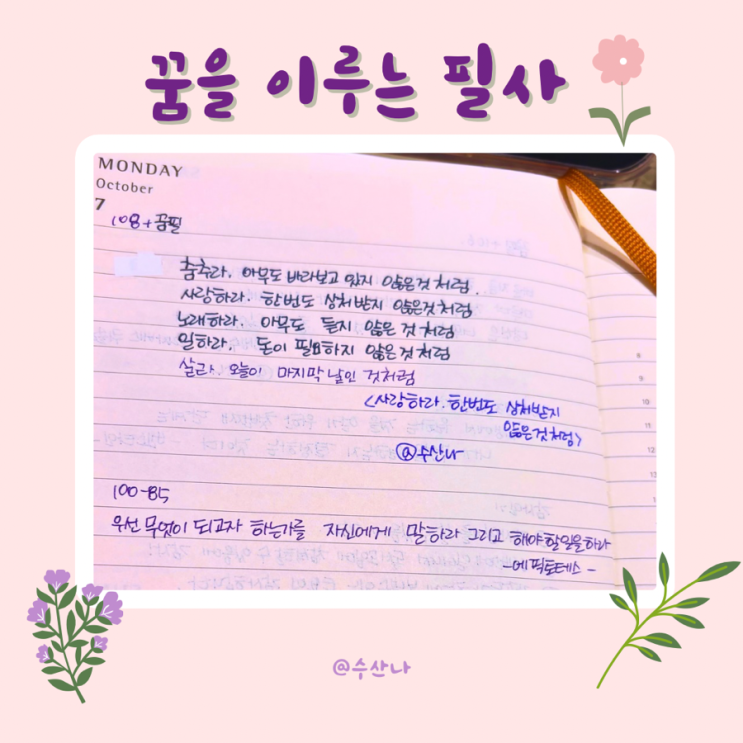 꿈을 이루는 필사
MONDAY
October
7
108+꿈필
춤추라. 아무도 바라보고 있지 않은것처럼.
사랑하라. 한번도 상처받지 않은것처럼
노래하라. 아무도 듣지 않은 것처럼
일하라. 돈이 필요하지 않은것처럼
살라. 오늘이 마지막 날인 것처럼
<사랑하라. 한번도 상처받지
않은것처럼>
@수산나
100-85
우선 무엇이 되고자 하는가를 자신에게 말하라 그리고 해야할일을하라
-에픽토테스-
8
9
10
11
12
13
@수산나